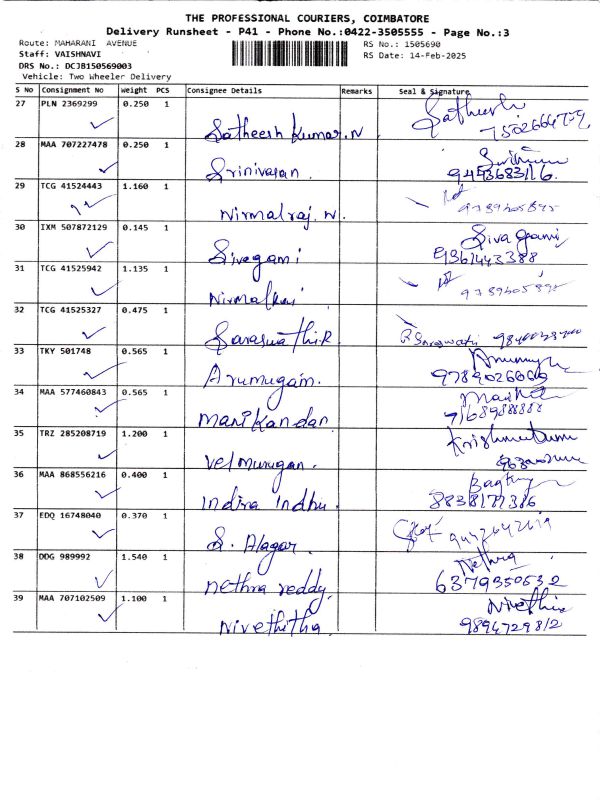 THE PROFESSIONAL COURIERS, COIMBATORE
Delivery Runsheet - P41 - Phone No.:0422-3505555 - Page No.:3
Route: MAHARANI AVENUE
RS No.: 1505690
Staff: VAISHNAVI
RS Date: 14-Feb-2025
DRS No.: DCJB150569003
Vehicle: Two Wheeler Delivery
S No Consignment No Weight PCS Consignee Details Remarks Seal & Signature
27 PLN 2369299 0.250 1
Satheesh Kumar.N Satheesh
28 MAA 707227478 0.250 1
Srinivasan
29 TCG 41524443 1.160 1
Nirmalraj. N.
30 IXM 507872129 0.145 1
Sivagami Siva Gami
9361443388
31 TCG 41525942 1.135 1
Nirmalraj
32 TCG 41525327 0.475 1
Saraswathi.R
33 TKY 501748 0.565 1
Arumugam. 9789026669
34 MAA 577460843 0.565 1
Manikandan
35 TRZ 285208719 1.200 1
Velmurugan.
36 MAA 868556216 0.400 1
Indira Indhu 8838177386
37 EDQ 16748040 0.370 1
S. Alagar
38 DDG 989992 1.540 1
Nethra
Nethra reddy. 6379350532
39 MAA 707102509 1.100 1
Nivethitha 9894729812